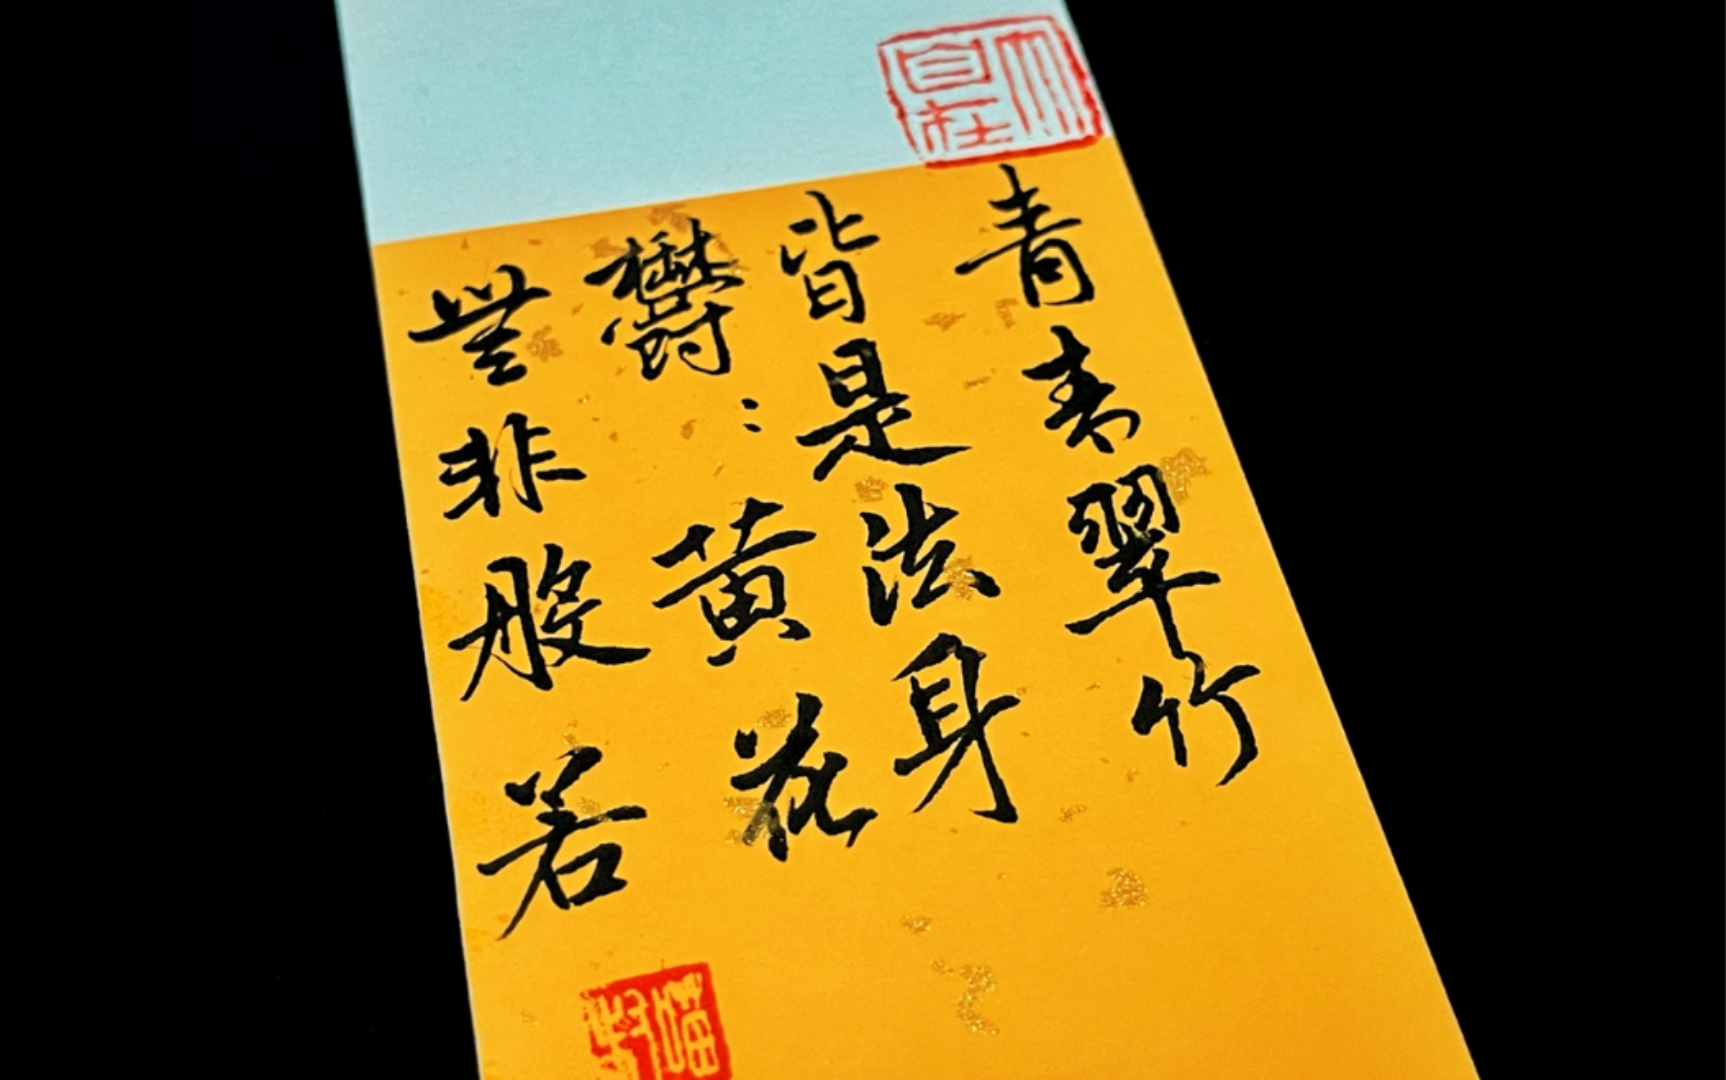 青青翠竹
皆是法身
鬱〻黄花
無非般若